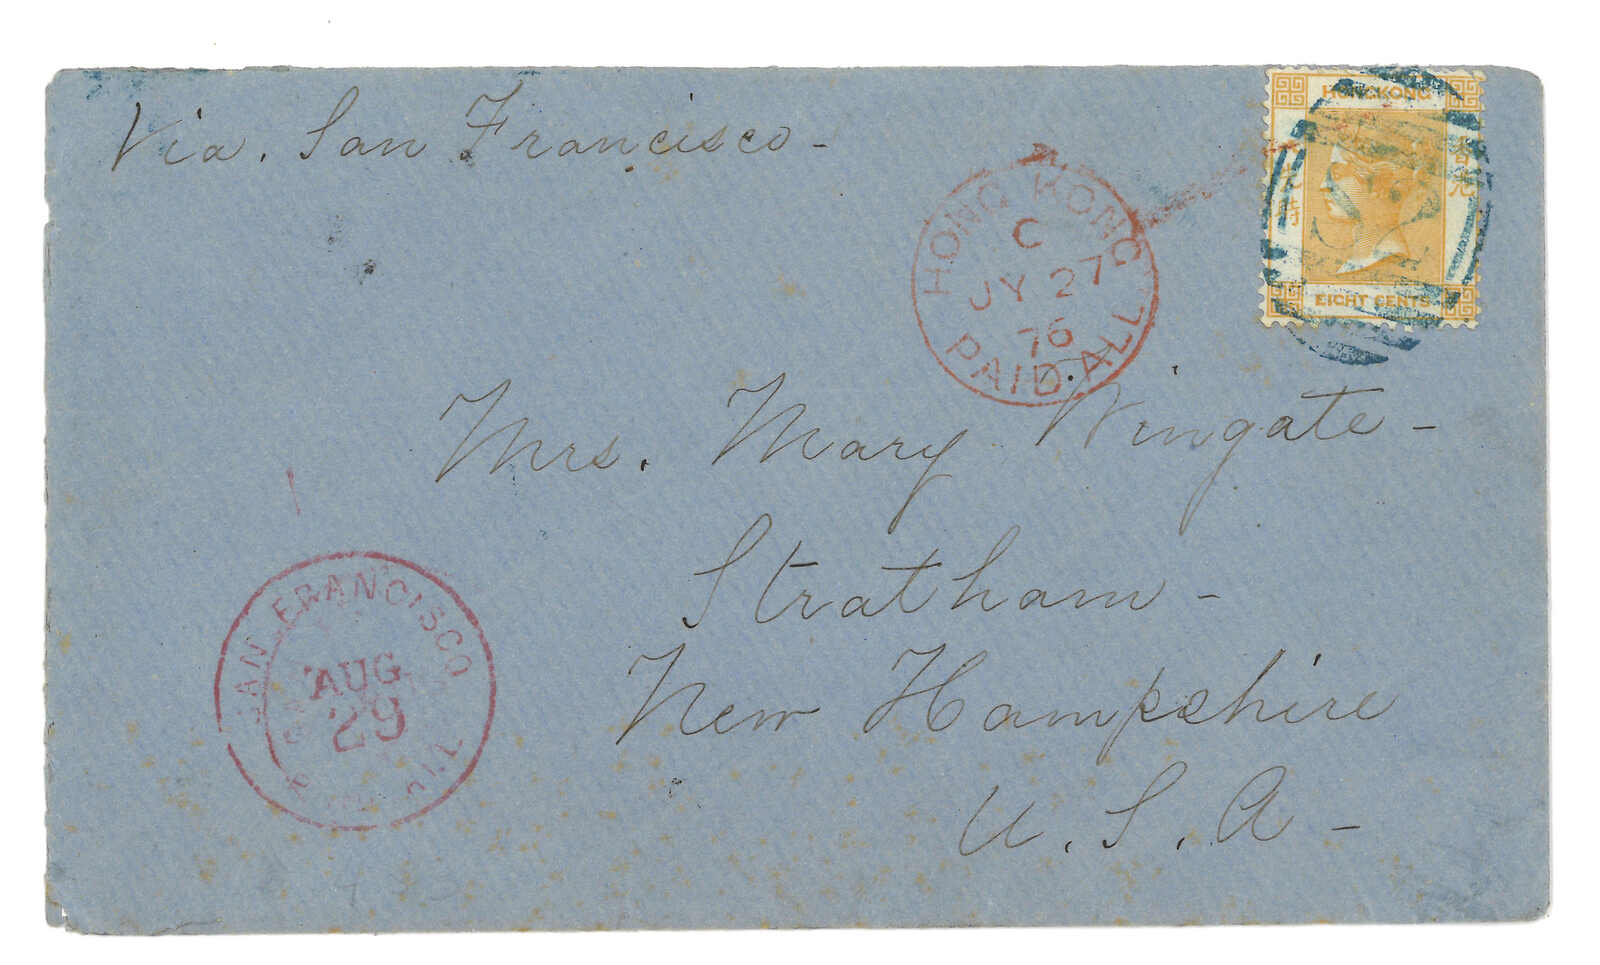 Via. San Francisco -
HONGKONG
EIGHT CENTS
HONG KONG
C
JY 27
76
PAID ALL
Mrs. Mary Wingate -
Stratham -
New Hampshire
U. S. A -
SAN FRANCISCO
AUG
29
ALL